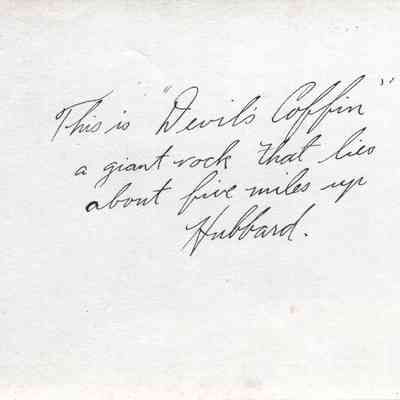 This is "Devil's Coffin"
a giant rock that lies
about five miles up
Hubbard.